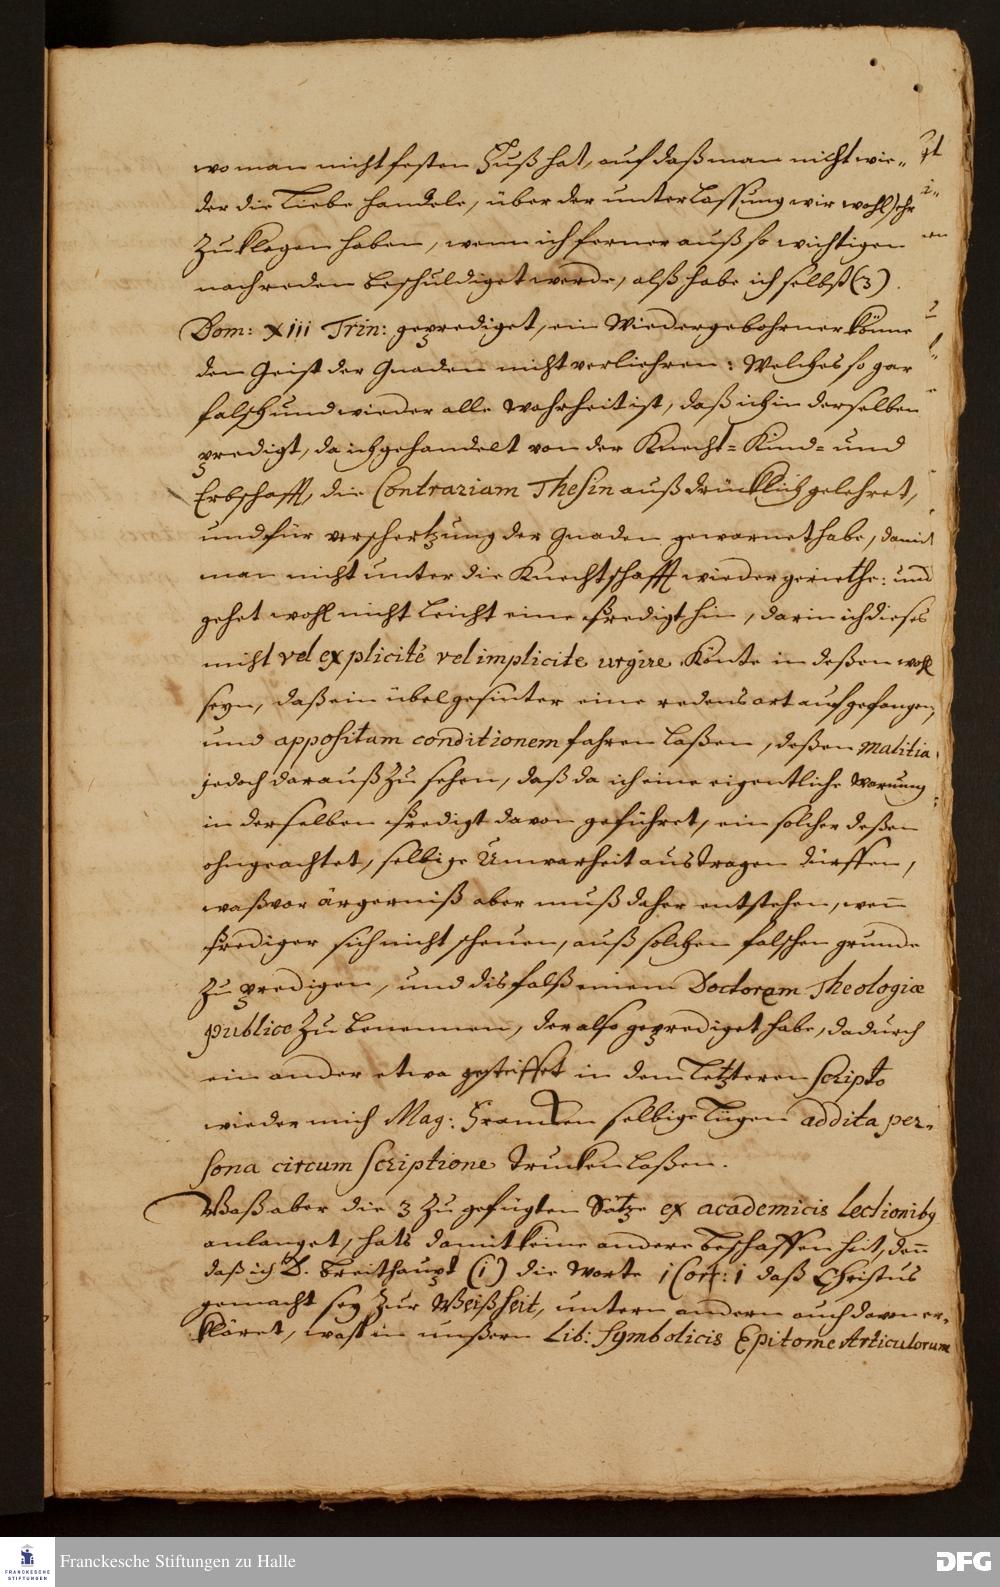 wo man nicht festen Fuß hat, auf daß man nicht wie„
der die Liebe handele, über der unterlassung wir wohl sehr
zu klagen haben, wenn ich ferner auß so wichtigen
nachreden beschuldiget werde, alß habe ich selbst (3)
Dom: XIII Trin: geprediget, ein Wiedergebohrner könne
den Geist der Gnaden nicht verliehren: Welches so gar
falsch und wieder alle Wahrheit ist, daß ich in derselben
predigt, da ich gehandelt von der Knecht- Kind- und
Erbschafft, die Contrariam Thesin außdrücklich gelehret,
und für verschertzung der Gnaden gewarnet habe, damit
man nicht unter die Knechtschafft wieder geriethe: und
gehet wohl nicht leicht eine Predigt hin, darin ich dieses
nicht vel explicité vel implicite urgire. Könte in deßen wohl
seyn, daß ein übelgesinter eine redens art aufgefangen,
und appositam conditionem fahren laßen, deßen malitia
jedoch darauß zu sehen, daß da ich eine eigentliche Warnung
in derselben Predigt davon geführet, ein solcher deßen
ohngeachtet, selbige Unwarheit austragen dürffen,
waß vor ärgerniß aber muß daher entstehen, wenn
Prediger sich nicht scheuen, auß solchen falschen grunde
zu predigen, und disfalß einem Doctorem Theologiæ
publice zu benennen, der also geprediget habe, dadurch
ein ander etwa gesteiffet in dem letzteren scripto
wieder mich Mag: Francken selbige Lügen addita per„
sona circumscriptione trucken laßen.
Waß aber die 3 zu gefügten Sätze ex academicis lectionibq
anlanget, hats damit keine andere beschaffenheit, denn
daß ich D. Breithaupt (1) die Worte 1 Cor: 1 daß Christus
gemacht sey zur Weißheit, untern andern auch davon er„
kläret, waß in unßern Lib: Symbolicis Epitome Articulorum
Franckesche Stiftungen zu Halle
FRANCKESCHE
STIFTUNGEN
DFG